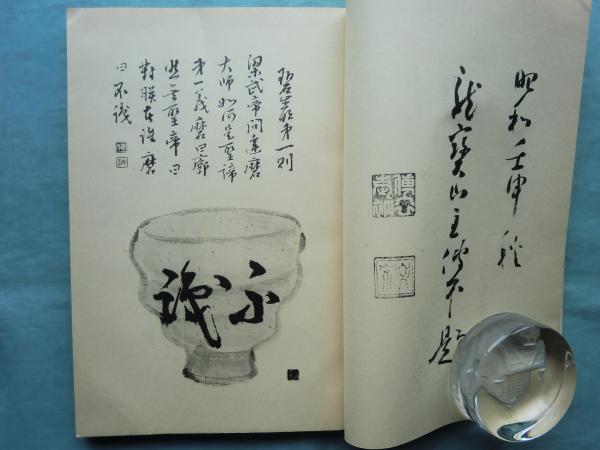 昭和壬申穐
龍寶山主傳衣題
碧巖第一則
梁武帝問達磨
大師如何是聖諦
第一義磨曰廓
然無聖帝曰
對朕者誰磨
曰不識
不識